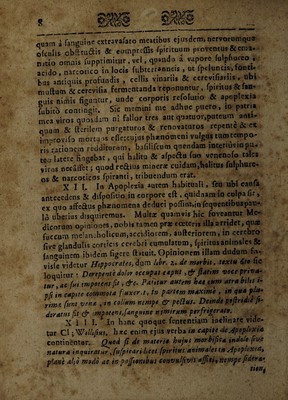 8
quam à sanguine extravasato meatibus ejusdem, nervorumque
osculis obstructis & compressis spirituum proventus & ema-
natio omnis supprimitur, vel, quando à vapore sulphureo
acido, narcotico in locis subterraneis, ut speluncis, fossi-
bus antiquis profundis, cellis vinariis & cerevisiariis, ubi
mustum & cerevisia fermentando reponuntur, spiritus & san-
guis nimis figuntur, unde corporis resolutio & apoplexia
subitò contingit. Sic memini me adhuc puero, in patria
mea viros quosdam ni fallor tres aut quatuor, puteum anti-
quum & sterilem purgaturos & renovaturos repentè & ex
improviso mortuos esse; cujus phænomeni vulgus tum tempo-
ris rationem redditurum, basiliscum quendam interiùs in pu-
teo latere fingebat, qui halitu & aspectu suo venenoso tales
viros necâsset; quod rectius mineræ cuidam, halitus sulphure-
os & narcoticos spiranti, tribuendum erat.
XII. In Apoplexia autem habituali, seu ubi causa
antecedens & dispositio in corpore est, quidnam in culpa sit,
ex quo affectus phænomena deduci possint, in sequentibus pau-
lò uberius disquiremus. Multæ quamvis hic foveantur Me-
dicorum opiniones, nobis tamen præ cæteris illa arridet, quæ
succum melancholicum, acidiusculum, austeriorem, in cerebro
sive glandulis corticis cerebri cumulatum, spiritus animales &
sanguinem ibidem figere statuit. Opinionem illam dudum fo-
visse videtur Hippocrates, dum libr. 2. de morbis, textu seu sic
loquitur: Derepentè dolor occupat caput, & statim voce priva-
tur, ac sui impotens sit, &c. Patitur autem hæc cum atra bilis i-
psi in capite commota fuxerit, in partem maximè, in qua plu-
rimæ sunt venæ, in collum nempe & pectus. Deinde postridie si-
deratus fit & impotens, sanguine nimirum perfrigerato.
XIII. In hanc quoque sententiam inclinare vide-
tur Cl; Willisius, hæc enim ejus verba in capite de Apoplexia
continentur. Quod si de materia hujus morbifica, indole sive
natura inquiratur, suspirari licet spiritus animales in Apoplexia,
planè aliò modò ac in passionibus convulsivis affici, nempe sidera-
tion,